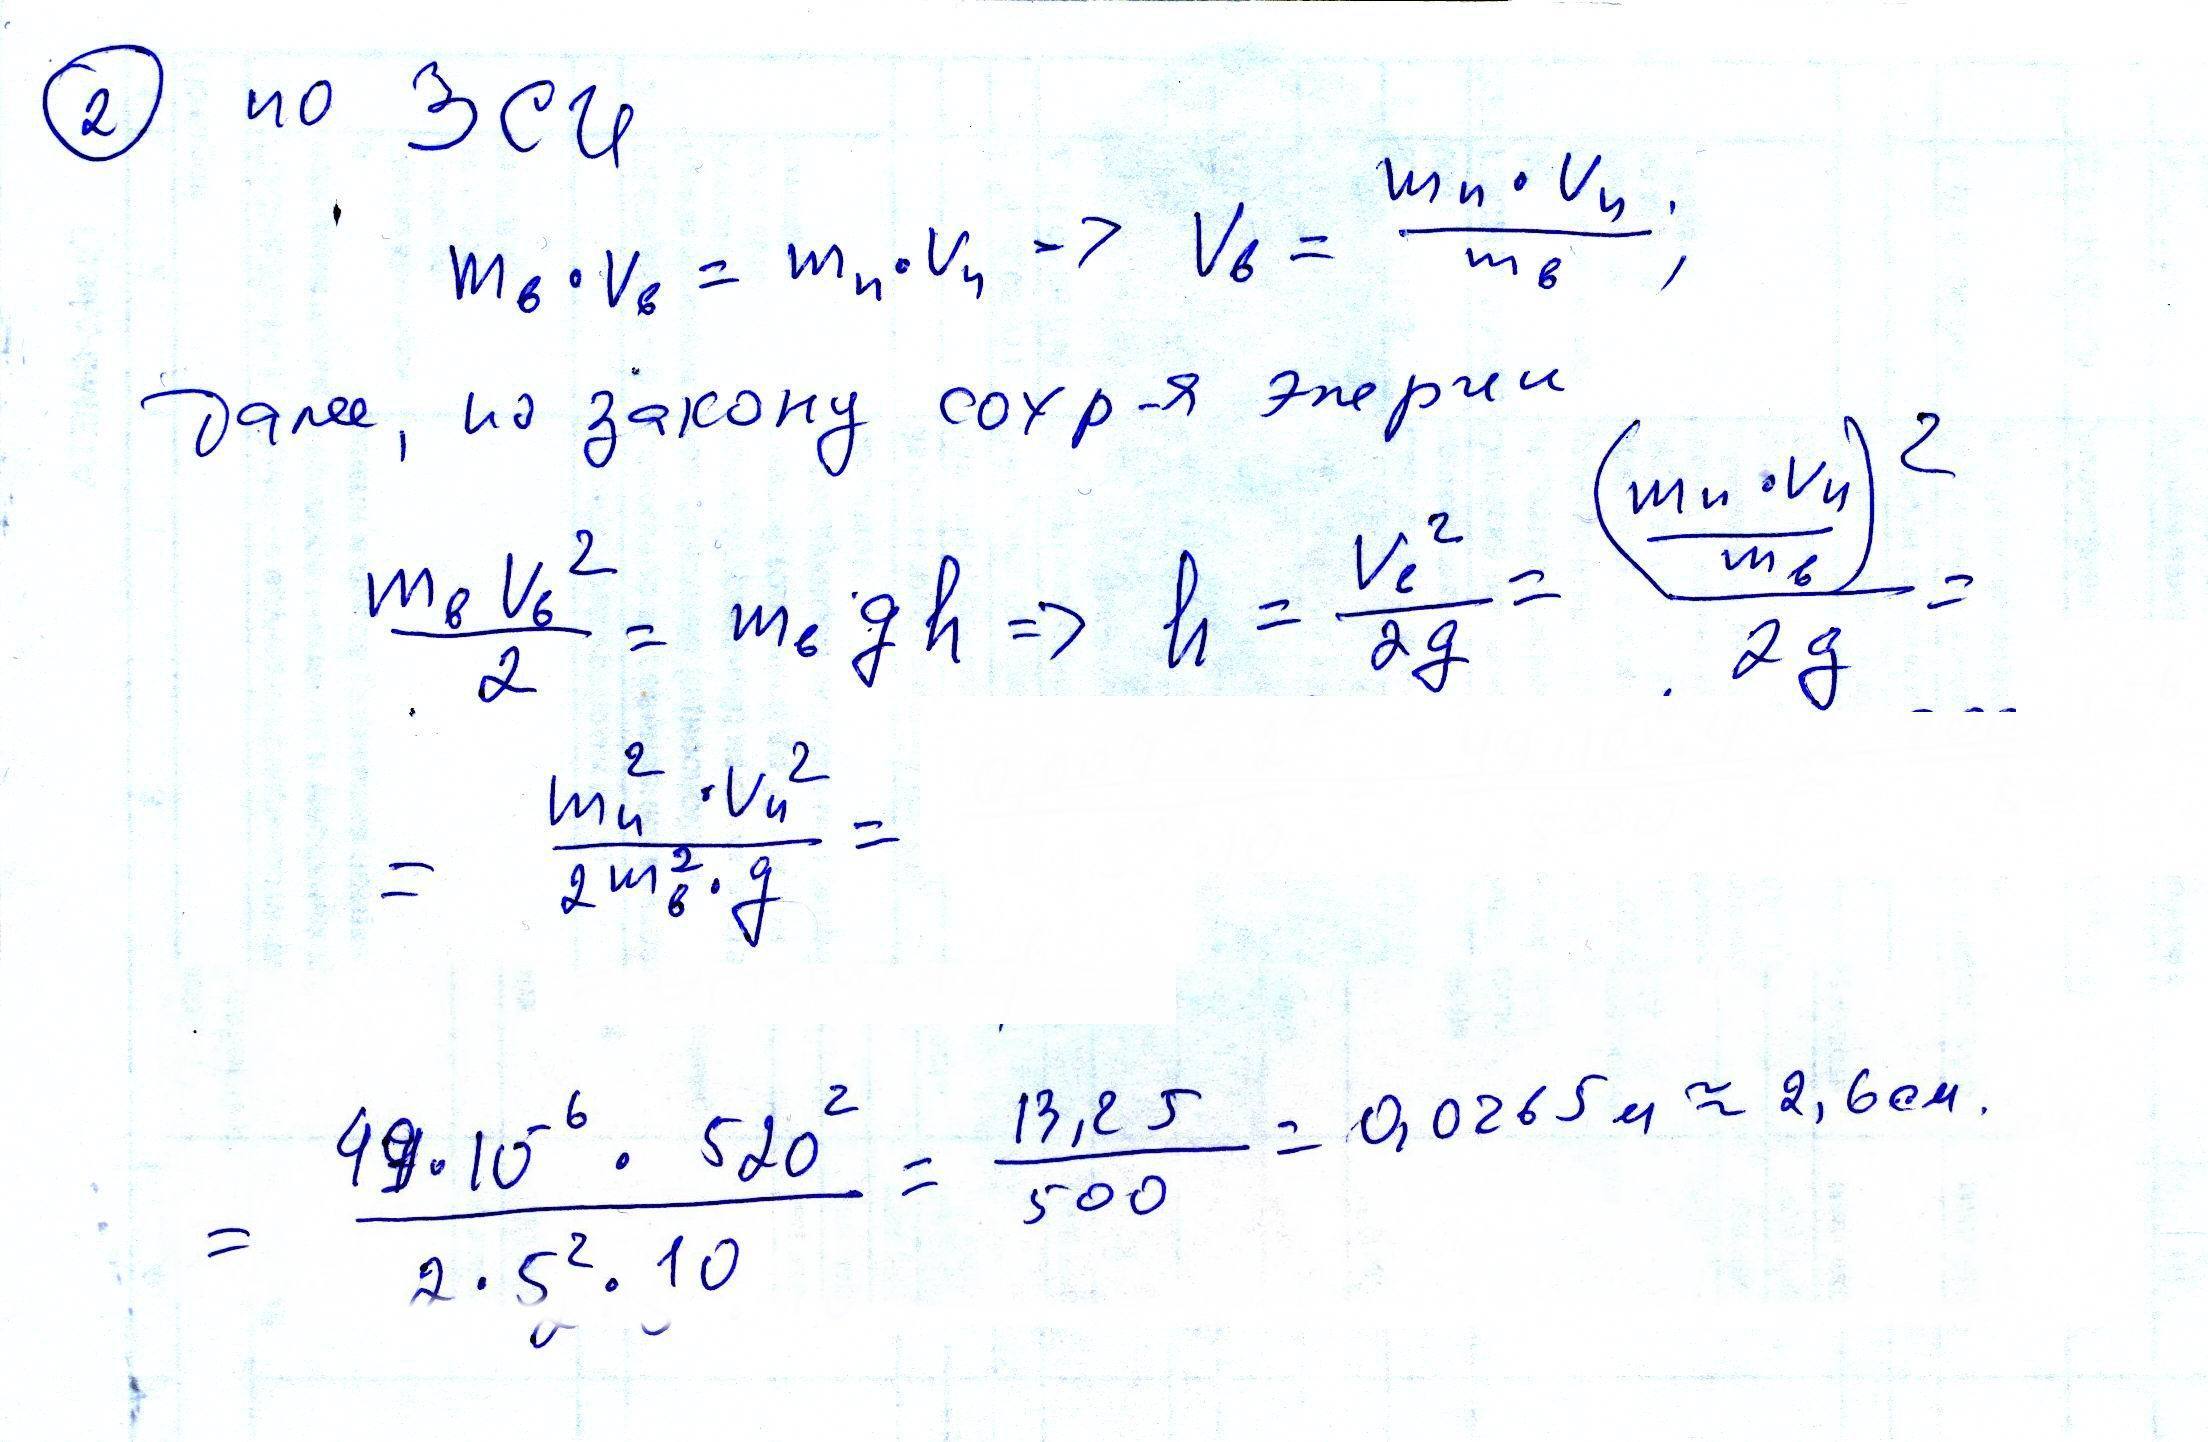 ② по ЗСИ
mв · Vв = mп · Vп -> Vв = (mп · Vп) / mв ;
Далее, по закону сохр-я энергии
mв Vв² / 2 = mв g h => h = Vв² / 2g = ((mп · Vп) / mв)² / 2g =
= mп² · Vп² / 2 mв² · g =
= 49 · 10⁻⁶ · 520² / 2 · 5² · 10 = 13,25 / 500 = 0,0265 м ≈ 2,6 см.